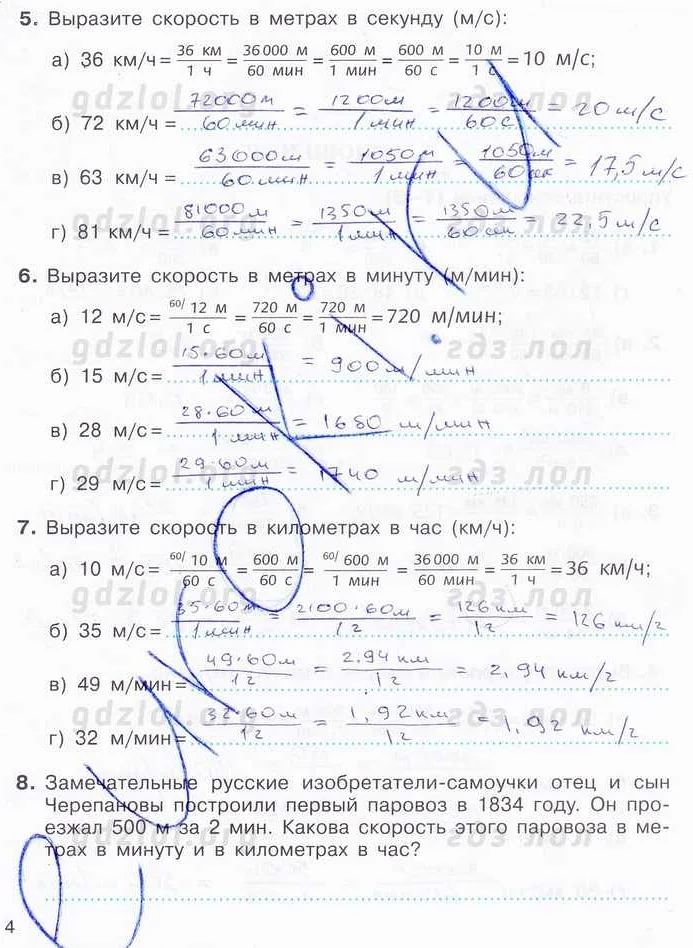 5. Выразите скорость в метрах в секунду (м/с):
а) 36 км/ч = 36 км/1 ч = 36 000 м/60 мин = 600 м/1 мин = 600 м/60 с = 10 м/1 с = 10 м/с;
gdzlol.org гдз лол
б) 72 км/ч = 72000м/60мин = 1200м/1мин = 1200м/60с = 20м/с
в) 63 км/ч = 63000м/60мин = 1050м/1мин = 1050м/60сек = 17,5м/с
gdzlol.org гдз лол
г) 81 км/ч = 81000м/60мин = 1350м/1мин = 1350м/60сек = 22,5м/с
6. Выразите скорость в метрах в минуту (м/мин):
а) 12 м/с = 60/ 12 м/1 с = 720 м/60 с = 720 м/1 мин = 720 м/мин;
gdzlol.org гдз лол
б) 15 м/с = 15·60м/1мин = 900м/мин
в) 28 м/с = 28·60м/1мин = 1680 м/мин
gdzlol.org гдз лол
г) 29 м/с = 29·60м/1мин = 1740 м/мин
7. Выразите скорость в километрах в час (км/ч):
а) 10 м/с = 60/ 10 м/60 с = 600 м/60 с = 60/ 600 м/1 мин = 36 000 м/60 мин = 36 км/1 ч = 36 км/ч;
gdzlol.org гдз лол
б) 35 м/с = 35·60м/1мин = 2100·60м/1ч = 126км/1ч = 126км/ч
в) 49 м/мин = 49·60м/1ч = 2,94км/1ч = 2,94км/ч
gdzlol.org гдз лол
г) 32 м/мин = 32·60м/1ч = 1,92км/1ч = 1,92 км/ч
8. Замечательные русские изобретатели-самоучки отец и сын
Черепановы построили первый паровоз в 1834 году. Он про-
езжал 500 м за 2 мин. Какова скорость этого паровоза в ме-
трах в минуту и в километрах в час?
4